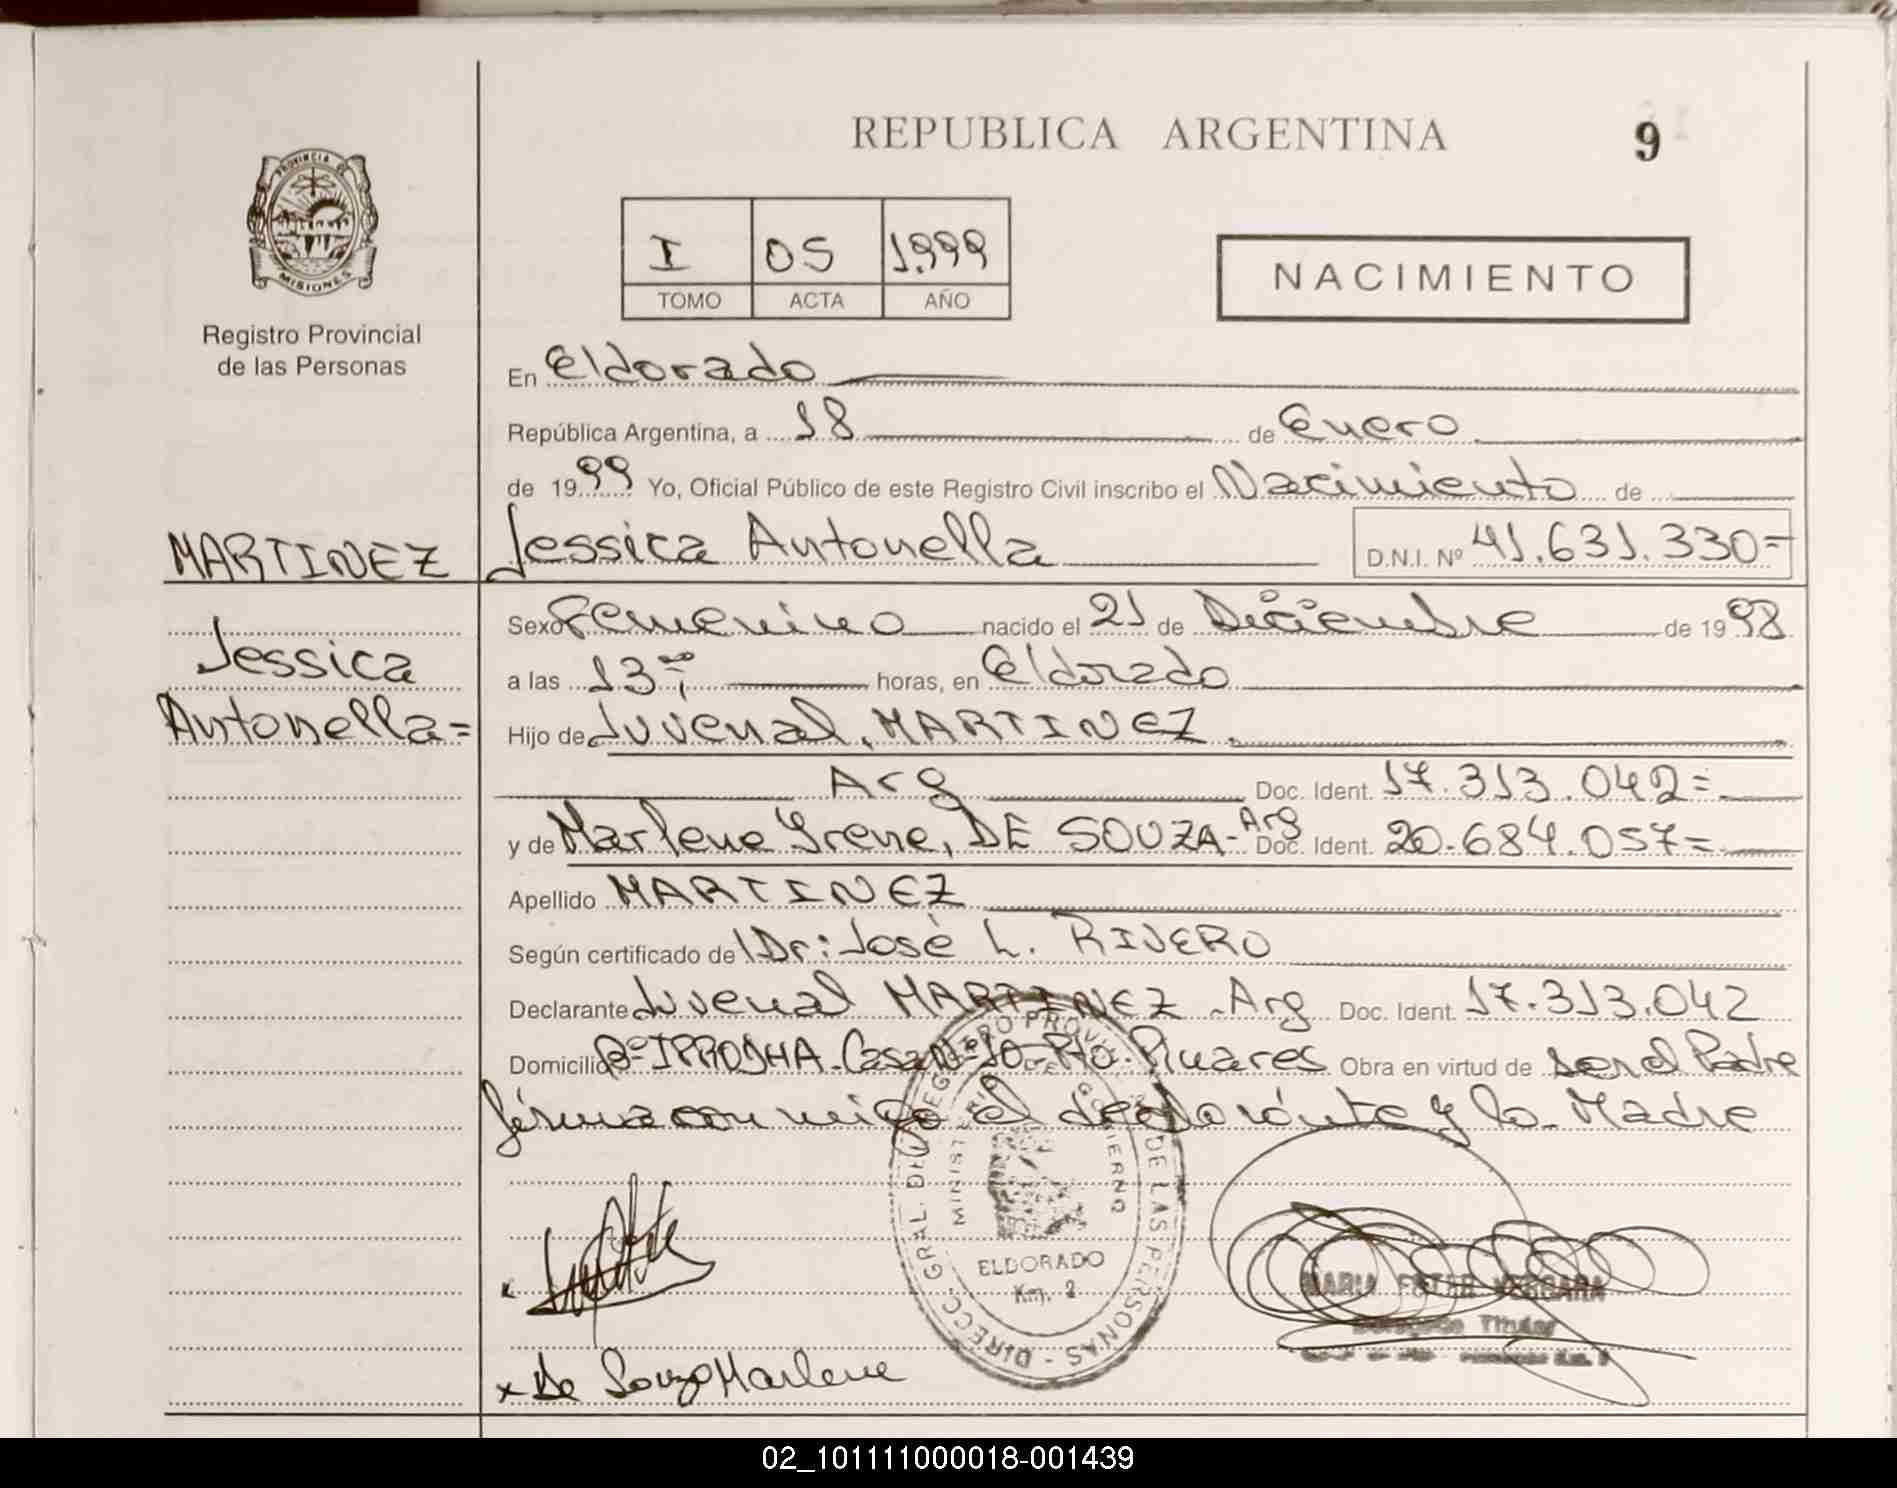 REPUBLICA ARGENTINA
9
PROVINCIA DE
MISIONES
Registro Provincial
de las Personas
I 05 1.999
TOMO ACTA AÑO
NACIMIENTO
En Eldorado
República Argentina, a 18 de Enero
de 1999 Yo, Oficial Público de este Registro Civil inscribo el Nacimiento de
MARTINEZ Jessica Antonella D.N.I. Nº 41.631.330=
Sexo Femenino nacido el 21 de Diciembre de 1998
Jessica
a las 13 00 horas, en Eldorado
Antonella=
Hijo de Juvenal, MARTINEZ
Arg Doc. Ident. 17.313.042=
y de Marlene Yrene, DE SOUZA- Arg Doc. Ident. 20.684.057=
Apellido MARTINEZ
Según certificado de Dr: José L. RIVERO
Declarante Juvenal MARTINEZ - Arg Doc. Ident. 17.313.042
Domicilio Bº IPRODHA - Casa Nº 10 - Pto. Pinares Obra en virtud de ser el Padre
firma con migo el declarante y la Madre
DIRECC. GRAL. DEL REGISTRO PROVINCIAL DE LAS PERSONAS
MINISTERIO DE GOBIERNO
ELDORADO
Km. 2
MARIA ESTER VERGARA
Delegado Titular
x
x De Souza Marlene
02_101111000018-001439